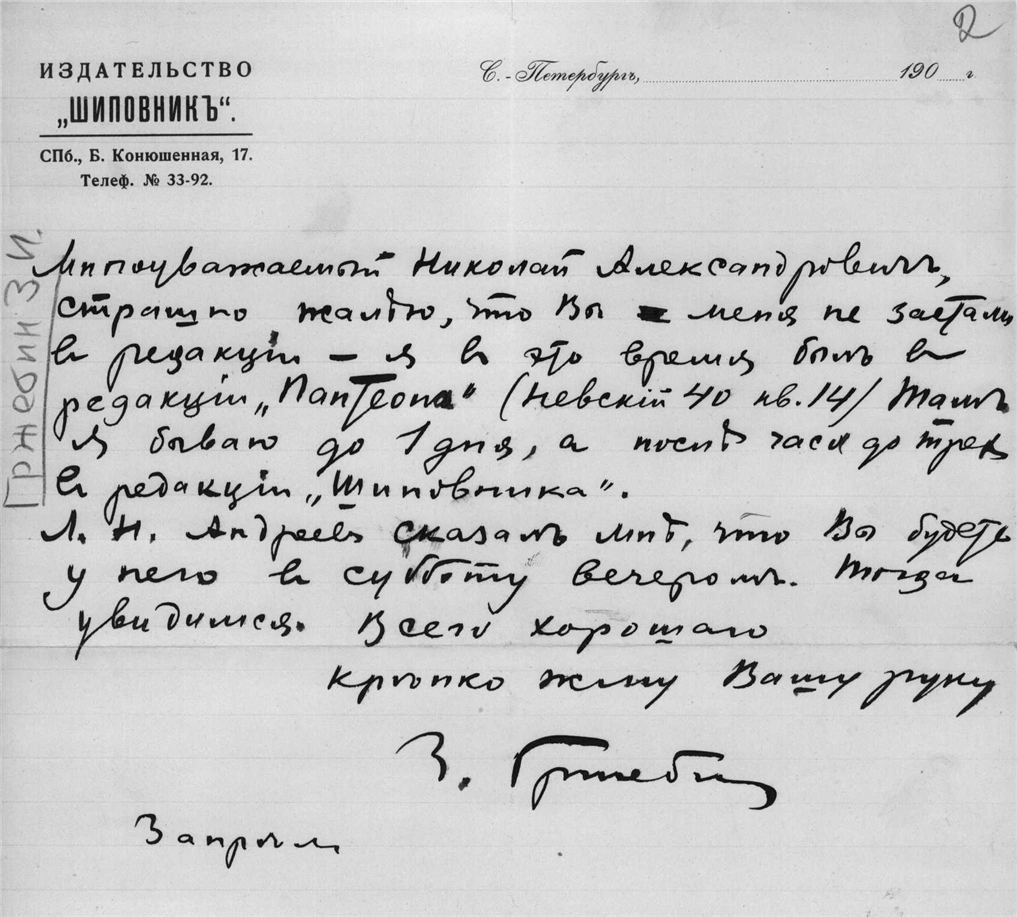 2
ИЗДАТЕЛЬСТВО
„ШИПОВНИКЪ“.
СПб., Б. Конюшенная, 17.
Телеф. № 33-92.
С.-Петербургъ, 190 г.
Гржебин З.И.
Многоуважаемый Николай Александровичъ,
страшно жалѣю, что Вы меня не застали
въ редакціи – я въ это время былъ въ
редакціи „Пантеона“ (Невскій 40 кв. 14) Тамъ
я бываю до 1 дня, а послѣ часа до трех
въ редакціи „Шиповника“.
Л. Н. Андреевъ сказалъ мнѣ, что Вы будете
у него въ субботу вечеромъ. Тогда
увидимся. Всего хорошаго
крѣпко жму Вашу руку
З. Гржебин